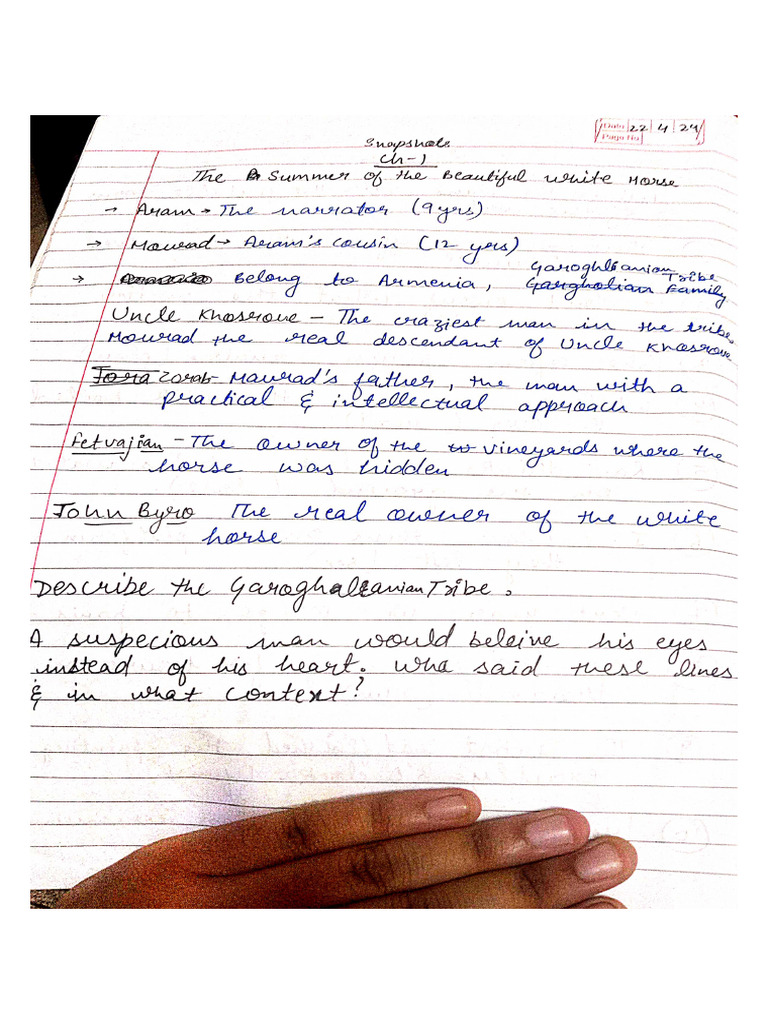 Date 22 4 24
Page No
Snapshots
Ch-1
The Summer of the Beautiful White Horse
→ Aram → The narrator (9 yrs)
→ Mourad → Aram's cousin (12 yrs)
→ Belong to Armenia, Garoghlanian Tribe
Gargholian Family
Uncle Khosrove - The craziest man in the tribe.
Mourad the real descendant of Uncle Khosrove
Zorab - Maurad's father, the man with a
practical & intellectual approach
Fetvajian - The owner of the vineyards where the
horse was hidden
John Byro The real owner of the white
horse
Describe the Garoghalanian Tribe.
A suspecious man would beleive his eyes
instead of his heart. Who said these lines
& in what context?